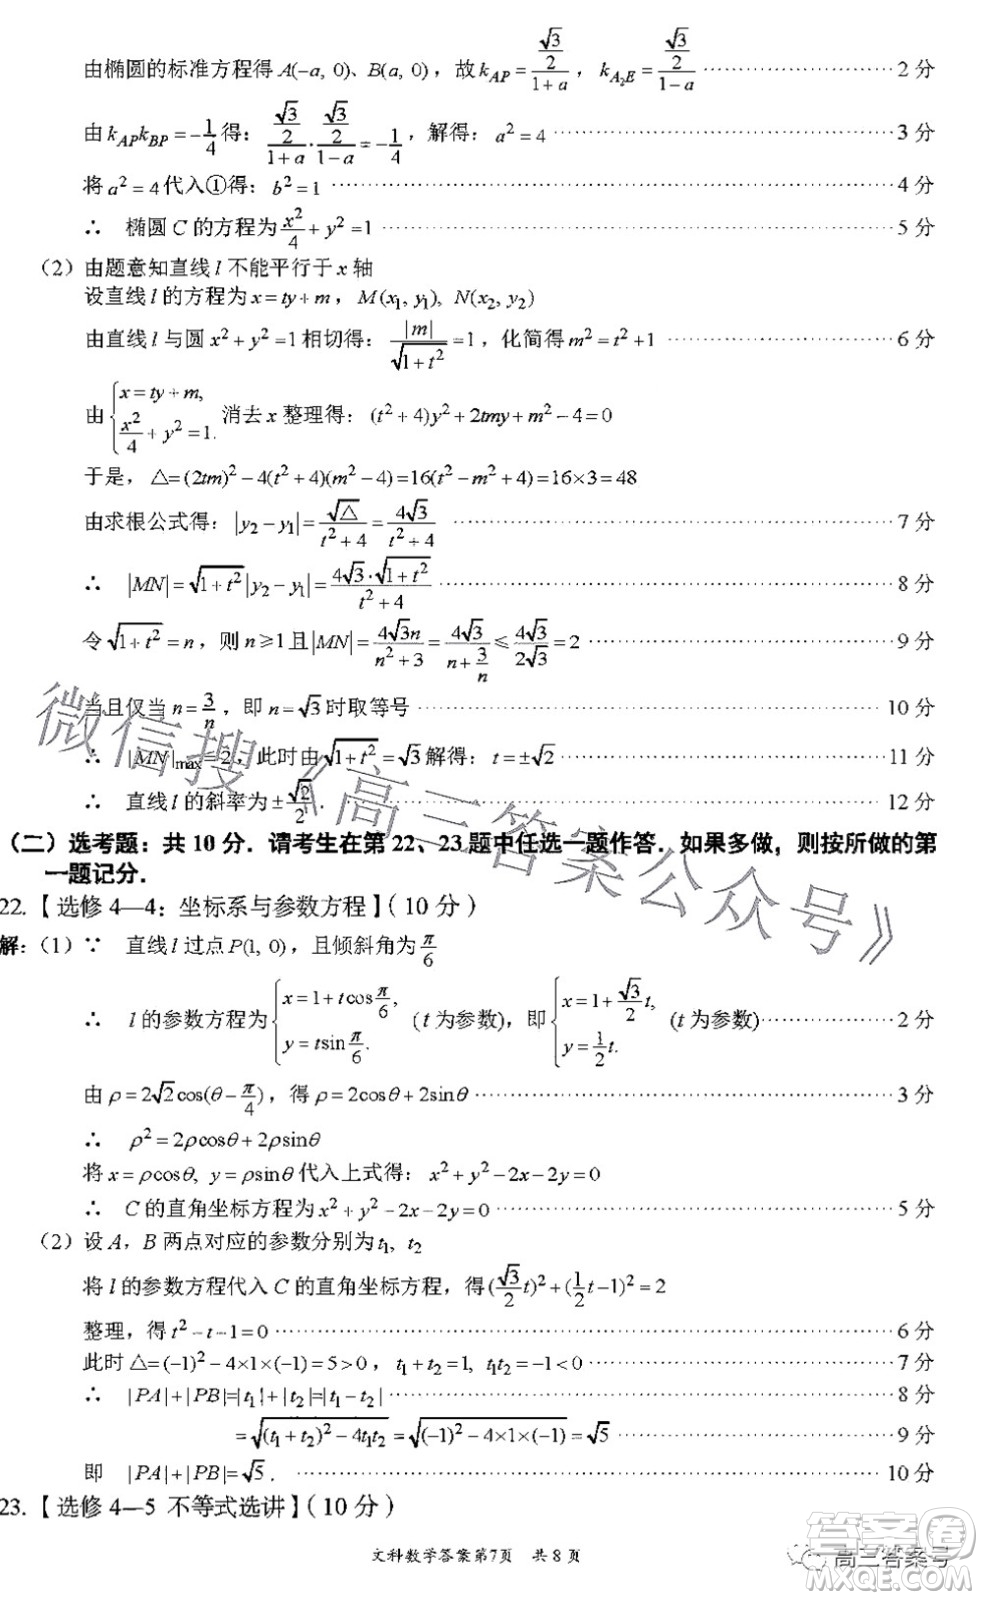 由椭圆的标准方程得 A(-a, 0)、B(a, 0)，故 k_{AP}=\frac{\frac{\sqrt{3}}{2}}{1+a}，k_{A_2E}=\frac{\frac{\sqrt{3}}{2}}{1-a} ……2 分
由 k_{AP}k_{BP}=-\frac{1}{4} 得：\frac{\frac{\sqrt{3}}{2}}{1+a}·\frac{\frac{\sqrt{3}}{2}}{1-a}=-\frac{1}{4}，解得：a²=4 ……3 分
将 a²=4 代入①得：b²=1 ……4 分
∴ 椭圆 C 的方程为 \frac{x²}{4}+y²=1 ……5 分
（2）由题意知直线 l 不能平行于 x 轴
设直线 l 的方程为 x=ty+m，M(x₁, y₁), N(x₂, y₂)
由直线 l 与圆 x²+y²=1 相切得：\frac{|m|}{\sqrt{1+t²}}=1，化简得 m²=t²+1 ……6 分
由 { x=ty+m, \frac{x²}{4}+y²=1. 消去 x 整理得：(t²+4)y²+2tmy+m²-4=0
于是，△=(2tm)²-4(t²+4)(m²-4)=16(t²-m²+4)=16×3=48
由求根公式得：|y₂-y₁|=\frac{\sqrt{△}}{t²+4}=\frac{4\sqrt{3}}{t²+4} ……7 分
∴ |MN|=\sqrt{1+t²}|y₂-y₁|=\frac{4\sqrt{3}·\sqrt{1+t²}}{t²+4} ……8 分
令 \sqrt{1+t²}=n，则 n≥1 且|MN|=\frac{4\sqrt{3}n}{n²+3}=\frac{4\sqrt{3}}{n+\frac{3}{n}}≤\frac{4\sqrt{3}}{2\sqrt{3}}=2 ……9 分
当且仅当 n=\frac{3}{n}，即 n=\sqrt{3} 时取等号 ……10 分
∴ |MN|_{max}=2，此时由 \sqrt{1+t²}=\sqrt{3} 解得：t=±\sqrt{2} ……11 分
∴ 直线 l 的斜率为 ±\frac{\sqrt{2}}{2}. ……12 分
（二）选考题：共 10 分．请考生在第 22、23 题中任选一题作答．如果多做，则按所做的第
一题记分．
22.【选修 4—4：坐标系与参数方程】（10 分）
解：（1）∵ 直线 l 过点 P(1, 0)，且倾斜角为 \frac{π}{6}
∴ l 的参数方程为 { x=1+tcos\frac{π}{6}, y=tsin\frac{π}{6}. (t 为参数)，即 { x=1+\frac{\sqrt{3}}{2}t, y=\frac{1}{2}t. (t 为参数) ……2 分
由 ρ=2\sqrt{2}cos(θ-\frac{π}{4})，得 ρ=2cosθ+2sinθ ……3 分
∴ ρ²=2ρcosθ+2ρsinθ
将 x=ρcosθ, y=ρsinθ 代入上式得：x²+y²-2x-2y=0
∴ C 的直角坐标方程为 x²+y²-2x-2y=0 ……5 分
（2）设 A，B 两点对应的参数分别为 t₁, t₂
将 l 的参数方程代入 C 的直角坐标方程，得 (\frac{\sqrt{3}}{2}t)²+(\frac{1}{2}t-1)²=2
整理，得 t²-t-1=0 ……6 分
此时 △=(-1)²-4×1×(-1)=5>0，t₁+t₂=1, t₁t₂=-1<0 ……7 分
∴ |PA|+|PB|=|t₁|+|t₂|=|t₁-t₂| ……8 分
=\sqrt{(t₁+t₂)²-4t₁t₂}=\sqrt{(-1)²-4×1×(-1)}=\sqrt{5} ……9 分
即 |PA|+|PB|=\sqrt{5}. ……10 分
23.【选修 4—5 不等式选讲】（10 分）
文科数学答案第7页 共 8 页
微信搜《高三答案公众号》
高三答案号